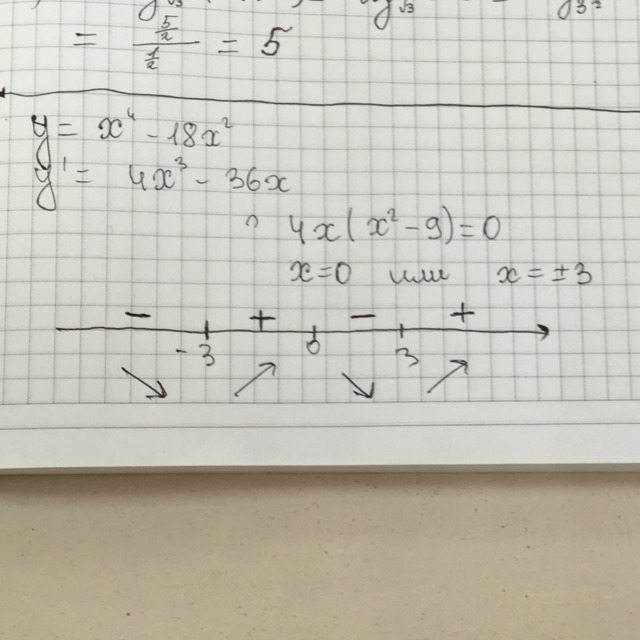 = 5/2 / 1/2 = 5
y = x⁴ - 18x²
y' = 4x³ - 36x
4x(x² - 9) = 0
x = 0 или x = ±3
- + - +
-3 0 3